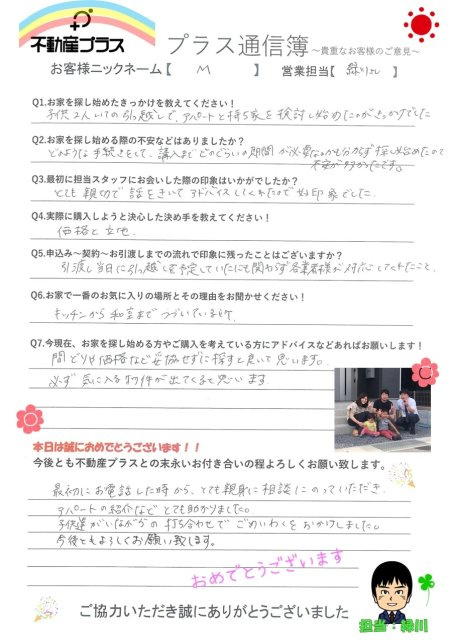 不動産プラス
プラス通信簿～貴重なお客様のご意見～
お客様ニックネーム【 M 】 営業担当【 緑川 】
Q1.お家を探し始めたきっかけを教えてください！
子供2人いての引っ越しで、アパートと持ち家を検討し始めたのがきっかけでした
Q2.お家を探し始める際の不安などはありましたか？
どのような手続きをして、購入までどのぐらいの期間が必要なのかも分からず探し始めたので
不安が多かったです。
Q3.最初に担当スタッフにお会いした際の印象はいかがでしたか？
とても親切で話をきいてアドバイスしてくれたので好印象でした。
Q4.実際に購入しようと決心した決め手を教えてください！
価格と立地
Q5.申込み～契約～お引渡しまでの流れで印象に残ったことはございますか？
引渡し当日に引っ越しを予定していたにも関わらず各業者様が対応してくれたこと。
Q6.お家で一番のお気に入りの場所とその理由をお聞かせください！
キッチンから和室までつづいている所
Q7.今現在、お家を探し始める方やご購入を考えている方にアドバイスなどあればお願いします！
間どりや価格など妥協せずに探すと良いと思います。
必ず気に入る物件が出てくると思います
本日は誠におめでとうございます！！
今後とも不動産プラスとの末永いお付き合いの程よろしくお願い致します。
最初にお電話した時から、とても親身に相談にのっていただき、
アパートの紹介などとても助かりました。
子供達がいながらの打ち合わせでごめいわくをおかけしました。
今後ともよろしくお願い致します。
おめでとうございます
ご協力いただき誠にありがとうございました
担当・緑川